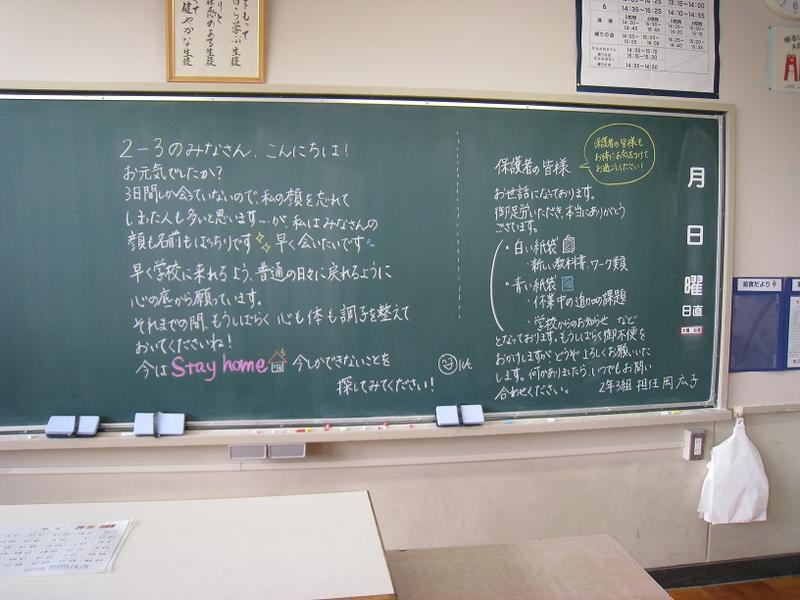 をもって
自ら学ぶ生徒
りと
任感のある生徒
健やかな生徒
6
清掃
帰りの会
14:35~15:10
14:35~14:50
2-3のみなさん、こんにちは!
お元気でしたか?
3日間しか会っていないので、私の顔を忘れて
しまった人も多いと思います…が、私はみなさんの
顔も名前もばっちりです 早く会いたいです
早く学校に来れるよう、普通の日々に戻れるように
心の底から願っています。
それまでの間、もうしばらく 心も体も調子を整えて
おいてくださいね!
今は Stay home 今しかできないことを
探してみてください!
保護者の皆様
保護者の皆様も
お体にお気をつけて
お過ごしください!
お世話になっております。
御足労いただき、本当にありがとう
ございます。
・白い紙袋
・新しい教科書、ワーク類
・青い紙袋
・休業中の追加の課題
・学校からのお知らせ など
となっております。もうしばらく御不便を
おかけしますが、どうぞよろしくお願いいた
します。何かありましたら、いつでもお問い
合わせください。 2年3組 担任 岡 広子
月
日
曜
日直
給食だより
2020/4/8